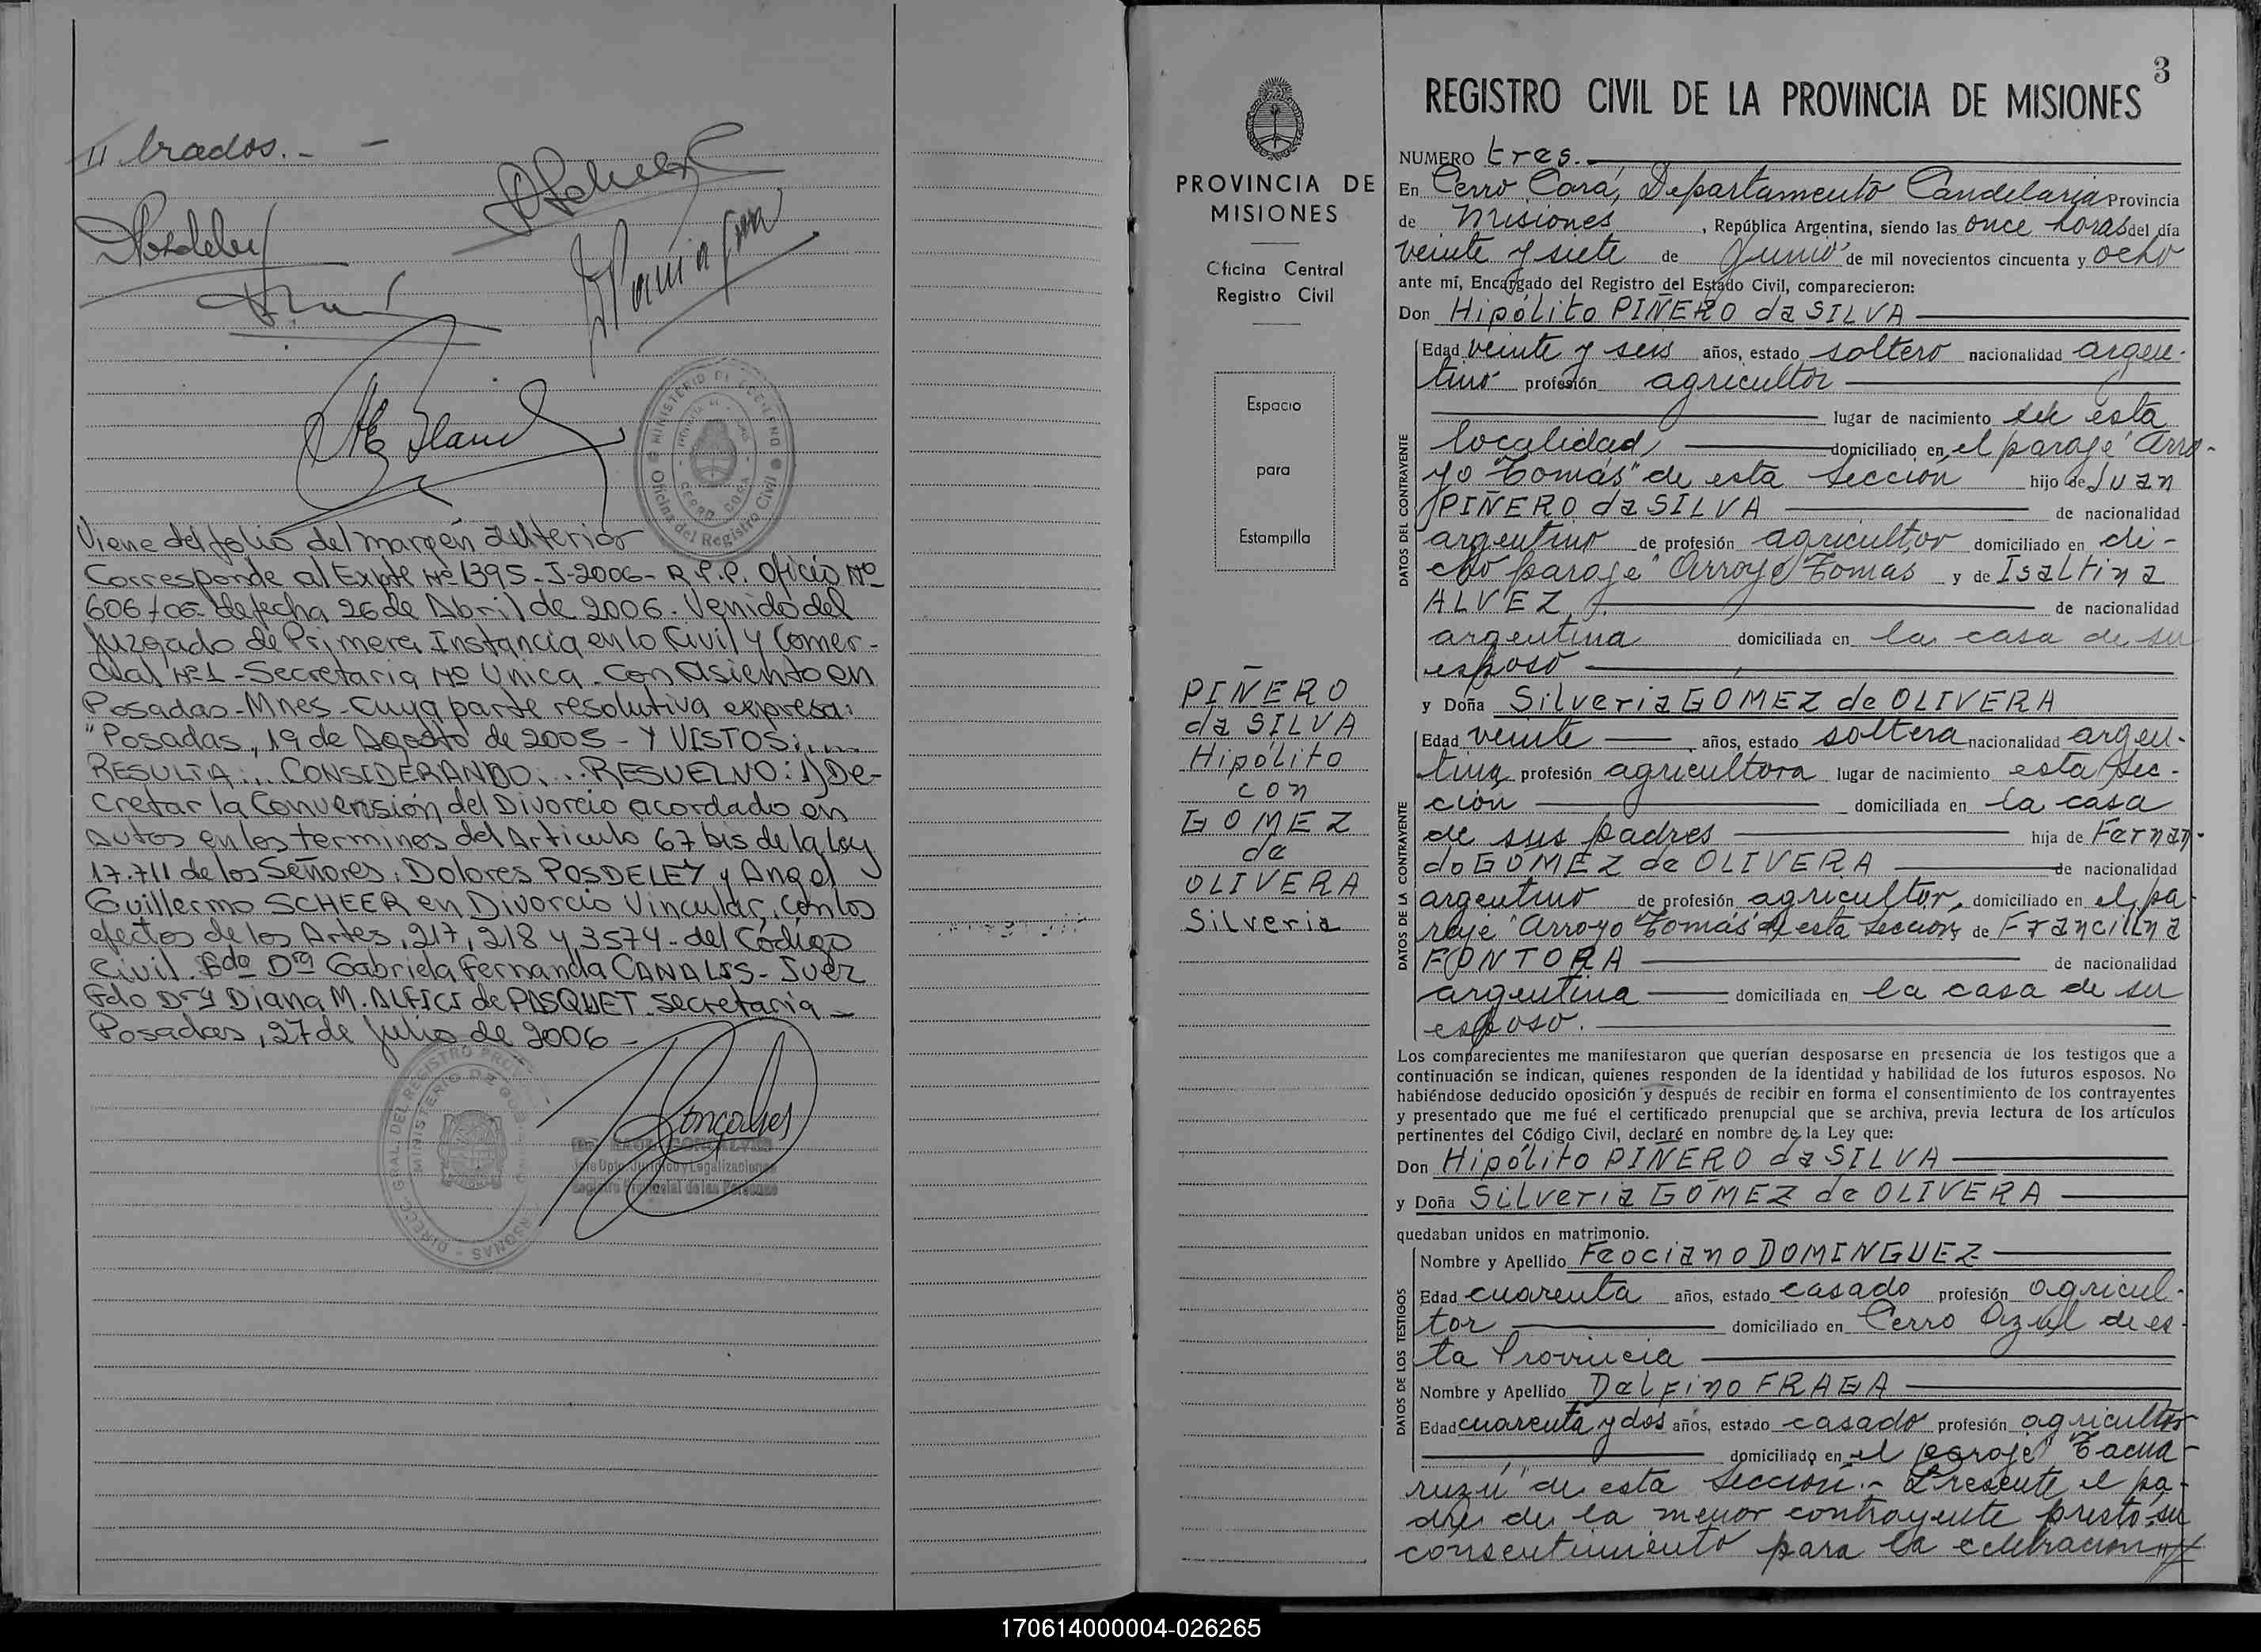 // brados.-
Posdeley
MINISTERIO DE GOBIERNO
Oficina del Registro Civil
Viene del folio del margen anterior
Corresponde al Expte Nº 1395-J-2006- R.P.P. Oficio Nº
606/06- de fecha 26 de Abril de 2006. Venido del
Juzgado de Primera Instancia en lo Civil y Comer-
cial Nº1 - Secretaria Nº Unica - Con Asiento en
Posadas - Mnes - Cuya parte resolutiva expresa:
"Posadas, 19 de Agosto de 2005 - Y VISTOS:....
RESULTA:.. CONSIDERANDO:... RESUELVO: 1) De-
cretar la Conversión del Divorcio acordado en
autos en los terminos del Articulo 67 bis de la Ley
17.711 de los Señores: Dolores POSDELEY y Angel
Guillermo SCHEER en Divorcio Vincular, con los
efectos de los Artes, 217, 218 y 3574- del Código
Civil. Fdo Dra Gabriela Fernanda CANALIS - Juez
Fdo Dra Diana M. ALFICI de PASQUET. Secretaria -
Posadas, 27 de Julio de 2006 -
Gonçalves
Dr. RAUL GONCALVES
Jefe Dpto. Jurídico y Legalizaciones
Registro Provincial de las Personas
PROVINCIA DE
MISIONES
Oficina Central
Registro Civil
Espacio
para
Estampilla
PIÑERO
da SILVA
Hipólito
con
GOMEZ
de
OLIVERA
Silveria
3
REGISTRO CIVIL DE LA PROVINCIA DE MISIONES
NUMERO tres.-
En Cerro Corá, Departamento Candelaria Provincia
de Misiones, República Argentina, siendo las once horas del día
veinte y siete de Junio de mil novecientos cincuenta y ocho
ante mí, Encargado del Registro del Estado Civil, comparecieron:
Don Hipólito PIÑERO da SILVA
DATOS DEL CONTRAYENTE
Edad veinte y seis años, estado soltero nacionalidad argen-
tino profesión agricultor
lugar de nacimiento en esta
localidad, domiciliado en el paraje "Arro-
yo Tomás" de esta Sección hijo de Juan
PIÑERO da SILVA de nacionalidad
argentino de profesión agricultor domiciliado en di-
cho paraje "Arroyo Tomás y de Isaltina
ALVEZ de nacionalidad
argentina domiciliada en la casa de su
esposo
y Doña Silveria GOMEZ de OLIVERA
DATOS DE LA CONTRAYENTE
Edad veinte años, estado soltera nacionalidad argen-
tina profesión agricultora lugar de nacimiento esta Sec-
ción domiciliada en la casa
de sus padres hija de Fernan-
do GOMEZ de OLIVERA de nacionalidad
argentino de profesión agricultor, domiciliado en el pa
raje "Arroyo Tomás" de esta Sección y de Francilina
FONTORA de nacionalidad
argentina domiciliada en la casa de su
esposo.
Los comparecientes me manifestaron que querían desposarse en presencia de los testigos que a
continuación se indican, quienes responden de la identidad y habilidad de los futuros esposos. No
habiéndose deducido oposición y después de recibir en forma el consentimiento de los contrayentes
y presentado que me fué el certificado prenupcial que se archiva, previa lectura de los artículos
pertinentes del Código Civil, declaré en nombre de la Ley que:
Don Hipólito PIÑERO da SILVA
y Doña Silveria GOMEZ de OLIVERA
quedaban unidos en matrimonio.
DATOS DE LOS TESTIGOS
Nombre y Apellido Feociano DOMINGUEZ
Edad cuarenta años, estado casado profesión agricul-
tor domiciliado en Cerro Azul de es-
ta Provincia
Nombre y Apellido Delfino FRAGA
Edad cuarenta y dos años, estado casado profesión agricultor
domiciliado en el paraje "Tacua-
ruzú" de esta Sección.- Presente el pa-
dre de la menor contrayente prestó su
consentimiento para la celebración //
170614000004-026265